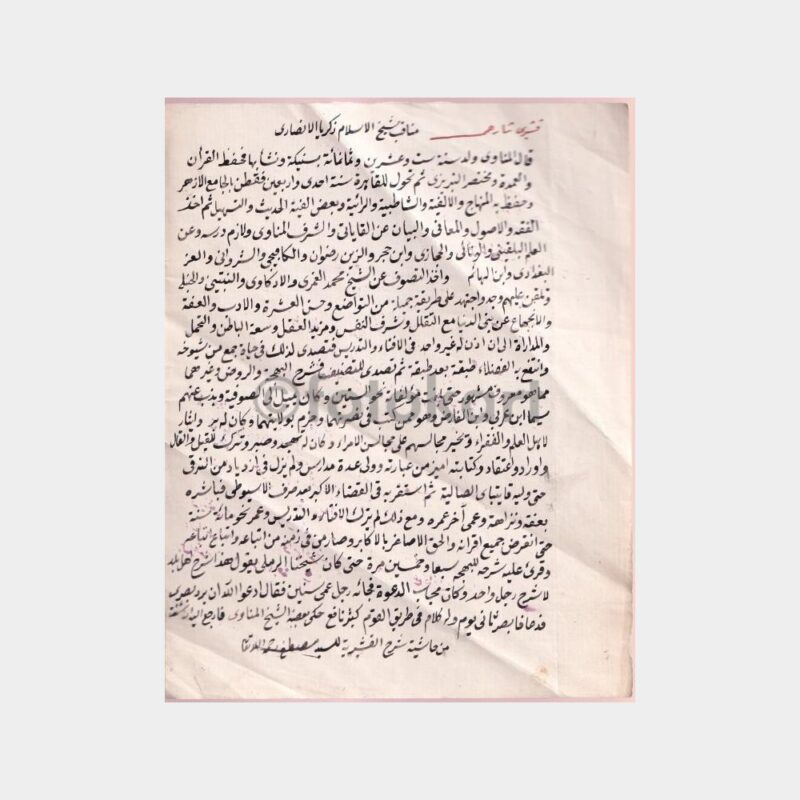 قشيرى شارحى مناقب شيخ الاسلام زكريا الانصارى
قال المناوى ولد سنة ست وعشرين وثمانمائة بسنيكة ونشأ بها فحفظ القرأن
والعمدة ومختصر التبريزى ثم تحول للقاهرة سنة احدى واربعين فقطن الجامع الازهر
وحفظ به المنهاج والالفية والشاطبية والرائية وبعض الفية الحديث والتسهيل ثم اخذ
الفقه والاصول والمعانى والبيان عن القاياتى والشرف المناوى ولازم درسه وعن
العلم البلقينى والونائى والحجازى وابن حجر والزين رضوان والكافيجى والشروانى والعز
البغدادى وابن الهائم واخذ التصوف عن الشيخ محمد الغمرى والادكاوى والنبتيتى
وتلقن منهم وجد واجتهد على طريقة جميلة من التواضع وحسن العشرة والادب والعفة
والانجماع عن بنى الدنيا مع التقلل وشرف النفس ومزيد العقل وسعة الباطن والتحمل
والمداراة الى ان اذن له غير واحد فى الافتاء والتدريس فتصدى لذلك فى حياة جمع من شيوخه
وانتفع به الفضلاء طبقة بعد طبقة ثم تصدى للتصنيف فشرح البهجة والروض وغيرهما
مما هو معروف مشهور حتى بلغت مؤلفاته نحو الستين وكان يميل الى الصوفية ويذب عنهم
سيما ابن عربى وابن الفارض وهو ممن كتب فى نصرتهما وجزم بولايتهما وكان له بر وايثار
لاهل العلم والفقراء ويخير مجالسهم على مجالس الامراء وكان له تهجد وصبر وترك للقيل والقال
واوراد واعتقاد وكتابته امتن من عبارته وولى عدة مدارس ولم يزل فى ازدياد من الترقى
حتى وليه قايتباى الصالية ثم استقر به فى القضاء الاكبر بعد صرف الاسيوطى فباشره
بعفة ونزاهة وعمى آخر عمره ومع ذلك لم يترك الافتاء والتدريس وعمر نحو مائة سنة
حتى انقرض جميع اقرانه والحق الاصاغر بالاكابر وصار من فى زمنه من اتباعه واتباع اتباعه
وقرئ عليه شرحه للبهجة سبعا وخمسين مرة حتى كان شيخنا الرملى يقول هذا شرح اهل بلد
لا شرح رجل واحد وكان مجاب الدعوة فجائه رجل عمى سنين فقال ادعوا الله ان يرد بصرى
فدعا فابصر ثانى يوم وله كلام فى طريق القوم كثير نافع حكى بعضه الشيخ المناوى فارجع اليه ان شئت
من حاشية شرح القشيرية للسيد مصطفى
©fotokart